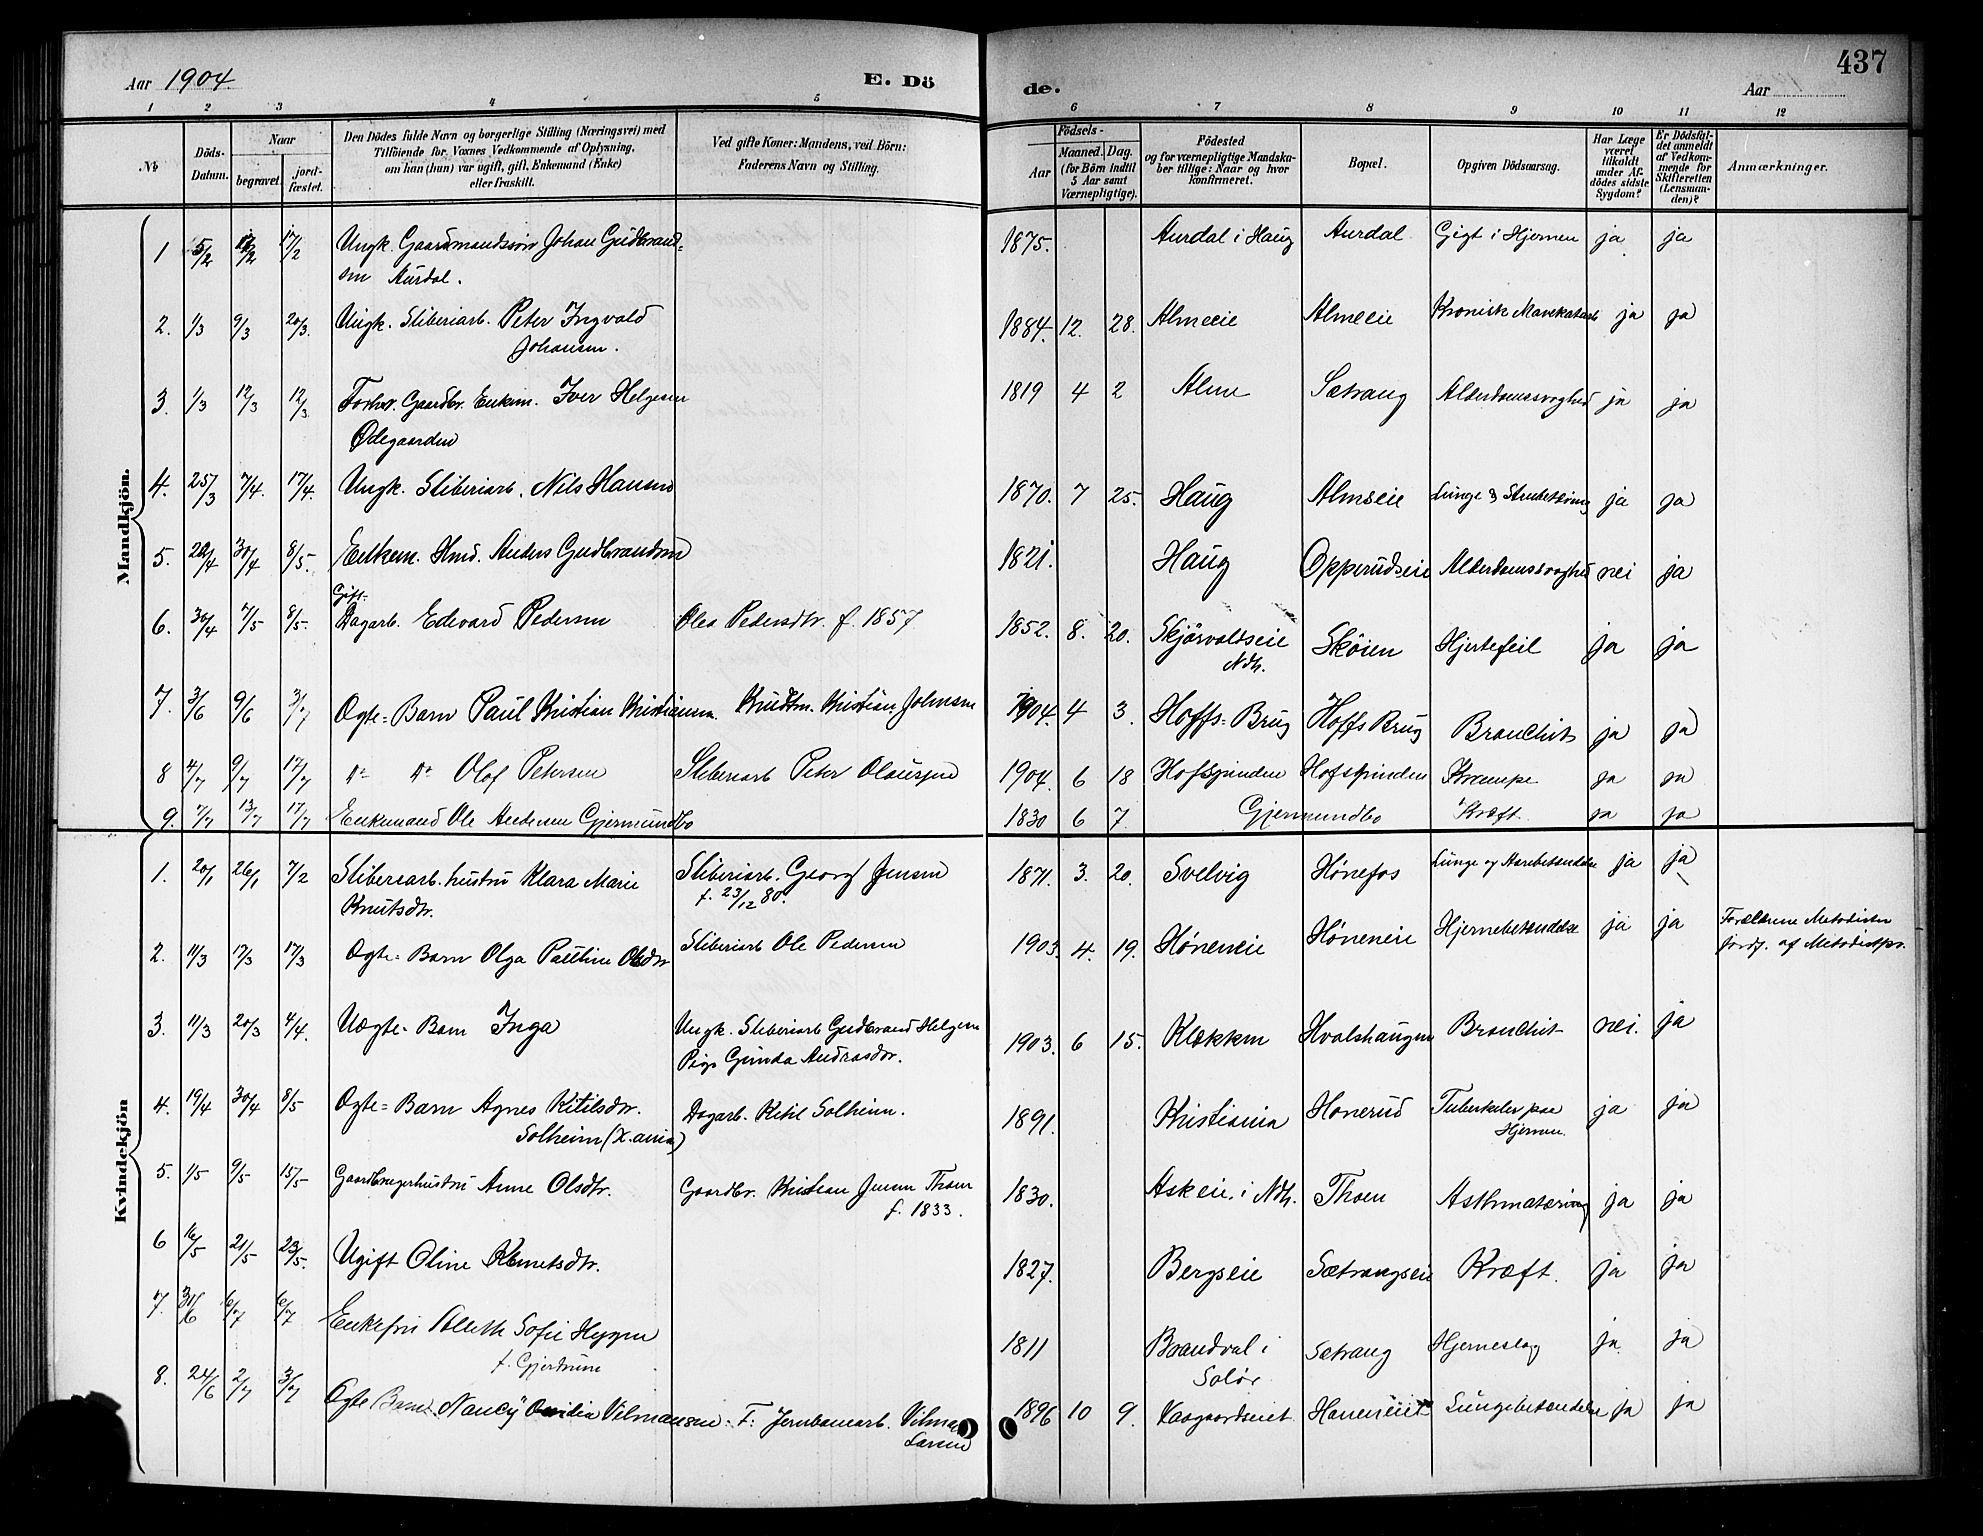 437
Aar 1904.
E. Dö
de.
Aar
1 2 3 4 5
6 7 8 9 10 11 12
No
Döds-Datum.
Naar
begravet
jord-fæstet.
Den Dödes fulde Navn og borgerlige Stilling (Næringsvei) med
Tilföiende for Voxnes Vedkommende af Oplysning,
om han (hun) var ugift, gift, Enkemand (Enke)
eller fraskilt.
Ved gifte Koner: Mandens, ved Börn:
Faderens Navn og Stilling.
Födsels-
Aar
Maaned. Dag.
(for Börn indtil
5 Aar samt
Værnepligtige).
Födested
og for værnepligtige Mandska-
ber tillige: Naar og hvor
konfirmeret.
Bopæl.
Opgiven Dödsaarsag.
Har Læge
været
tilkaldt
under Af-
dödes sidste
Sygdom?
Er Dödsfal-
det anmeldt
af Vedkom-
mende for
Skifteretten
(Lensman-
den)?
Anmærkninger.
Mandkjön.
1 5/2 17/2 Ungk. Gaardmandssön Johan Gudbrand-
sen Aurdal. 1875. Aurdal i Haug Aurdal Gigt i Hjernen ja ja
2. 1/3 9/3 20/3. Ungk. Sliberiarb. Peter Ingvald
Johansen. 1884. 12. 28. Almeie Almeie Kronisk Mavekatarh ja ja
3. 1/3 12/3 12/3 Forhv. Gaardbr. Enkem. Iver Helgesen
Ødegaarden 1819 4 2 Alme Sætrang Alderdomssvaghed ja ja
4. 25/3 7/4. 17/4. Ungk. Sliberiarb. Nils Hansen 1870. 7 25. Haug Almseie Lunge & ja ja
5. 22/4 30/4 8/5. Enkem. Hmd. Anders Gudbrandsen 1821. Haug Opperudseie Alderdomssvaghed nei ja
Gift.
6. 30/4 7/5 8/5. Dagarb. Edevard Pedersen Olea Pedersdtr. f. 1857 1852. 8. 20. Skjörvoldseie
Ndh. Skóien Hjertefeil ja ja
7. 3/6 9/6 3/7 Ægte-Barn Paul Kristian Kristiansen. Kristian Johnsen 1904. 4 3. Hoffs-Brug Hoffs Brug Bronchit ja ja
8 4/7 9/7 17/7 Do Do Olof Petersen Sliberiarb Peter Olaussen 1904 6 18 Hofsgrinden Hofsgrinden Krampe ja ja
9. 7/7 13/7 17/7 Enkemand Ole Andersen Gjermundbo 1830 6 7 Gjermundbo Kræft. ja ja
Kvindekjön
1. 20/1 26/1 7/2 Sliberiarb. hustru Klara Marie
Knutsdtr. Sliberiarb. Georg Jensen
f. 23/12 80. 1871. 3. 20. Svelvig Hønefos Lunge og ja ja
2. 11/3 17/3 17/3 Ægte-Barn Olga Pauline Olsdtr Sliberiarb Ole Pedersen 1903. 4. 19. Høneneie Høneneie Hjernebetændelse ja ja Forældrene Metodister
jordf. af Metodistpr.
3. 11/3 20/3 4/4. Uægte-Barn Inga Ungk. Sliberiarb Gudbrand Helgesen
Pige Gunda Andreasdtr. 1903. 6 15. Klækken Hvalshaugen Bronchit nei. ja
4. 19/4 30/4 8/5 Ægte-Barn Agnes Kitilsdtr.
Solheim (X.ania) Dagarb. Kitil Solheim. 1891. Kristiania Honerud Tuberkler paa
Hjernen. ja ja
5. 1/5 9/5 15/5 Gaardbrugerhustru Anne Olsdtr. Gaardbr. Kristian Jensen Thoen
f. 1833. 1830. Askeie i Ndh. Thoen ja ja
6 16/5 21/5 23/5. Ugift Oline Klemetsdtr. 1827. Bergseie Sætrangseie Kræft. ja ja
7. 6/7 6/7 Enkefru Sofie Hygen
f. Gjerdrum 1811 Brandval i
Solör Sætrang Hjerneslag ja ja
8. 24/6 2/7 3/7 Ægte Barn Nancy Ovidia Vilmansen. F: Jernbanearb. Vilman
Larsen 1896 10 9. Høneneiet Lungebetændelse ja ja